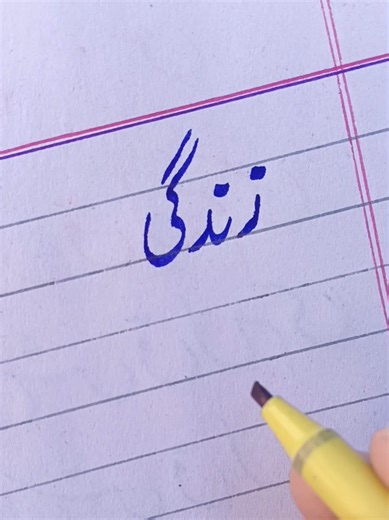 زندگی